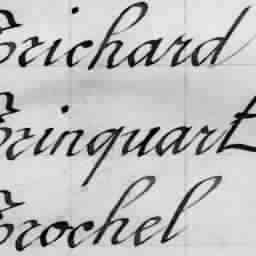 Trichard
Trinquart
Trochel